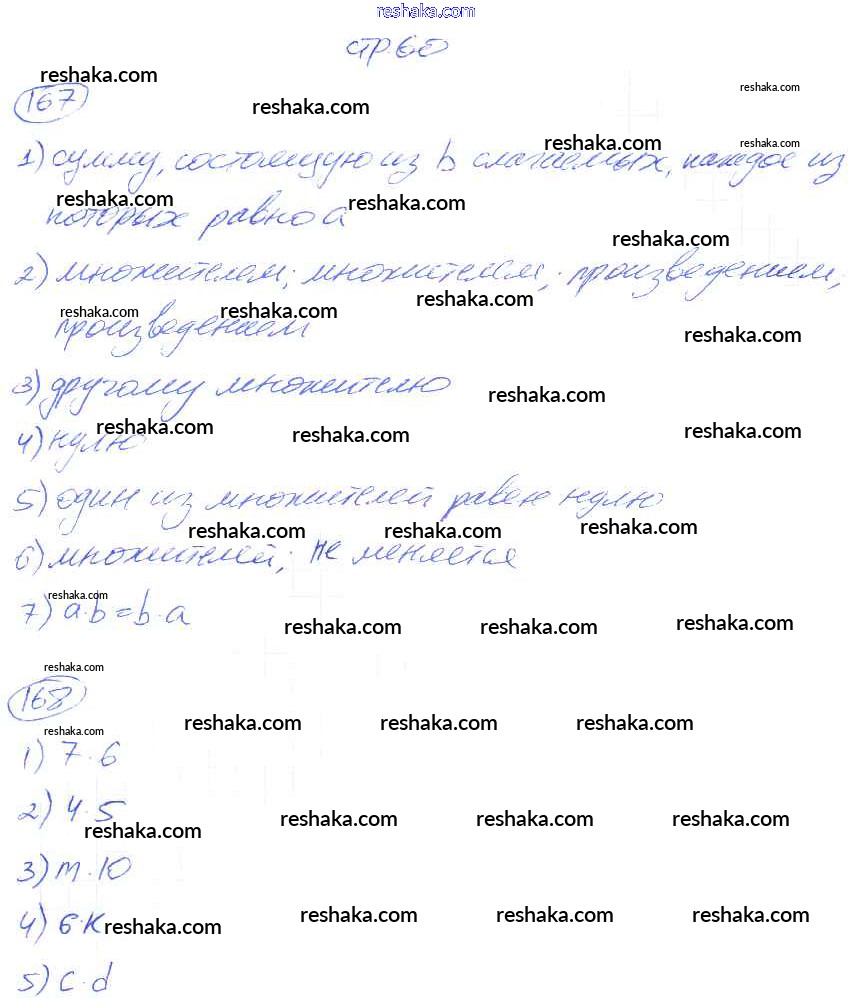 reshaka.com
стр. 60
reshaka.com
reshaka.com
167
reshaka.com
reshaka.com
reshaka.com
1) сумму, состоящую из b слагаемых, каждое из
reshaka.com
reshaka.com
которых равно a
reshaka.com
2) множителем; множителем; произведением;
reshaka.com
reshaka.com
reshaka.com
произведением
reshaka.com
3) другому множителю
reshaka.com
reshaka.com
reshaka.com
reshaka.com
4) нулю
5) один из множителей равен нулю
reshaka.com
reshaka.com
reshaka.com
6) множителей; не меняется
reshaka.com
7) a·b=b·a
reshaka.com
reshaka.com
reshaka.com
reshaka.com
168
reshaka.com
reshaka.com
reshaka.com
reshaka.com
1) 7·6
2) 4·5
reshaka.com
reshaka.com
reshaka.com
reshaka.com
3) m·10
4) 6·k
reshaka.com
reshaka.com
reshaka.com
reshaka.com
5) c·d